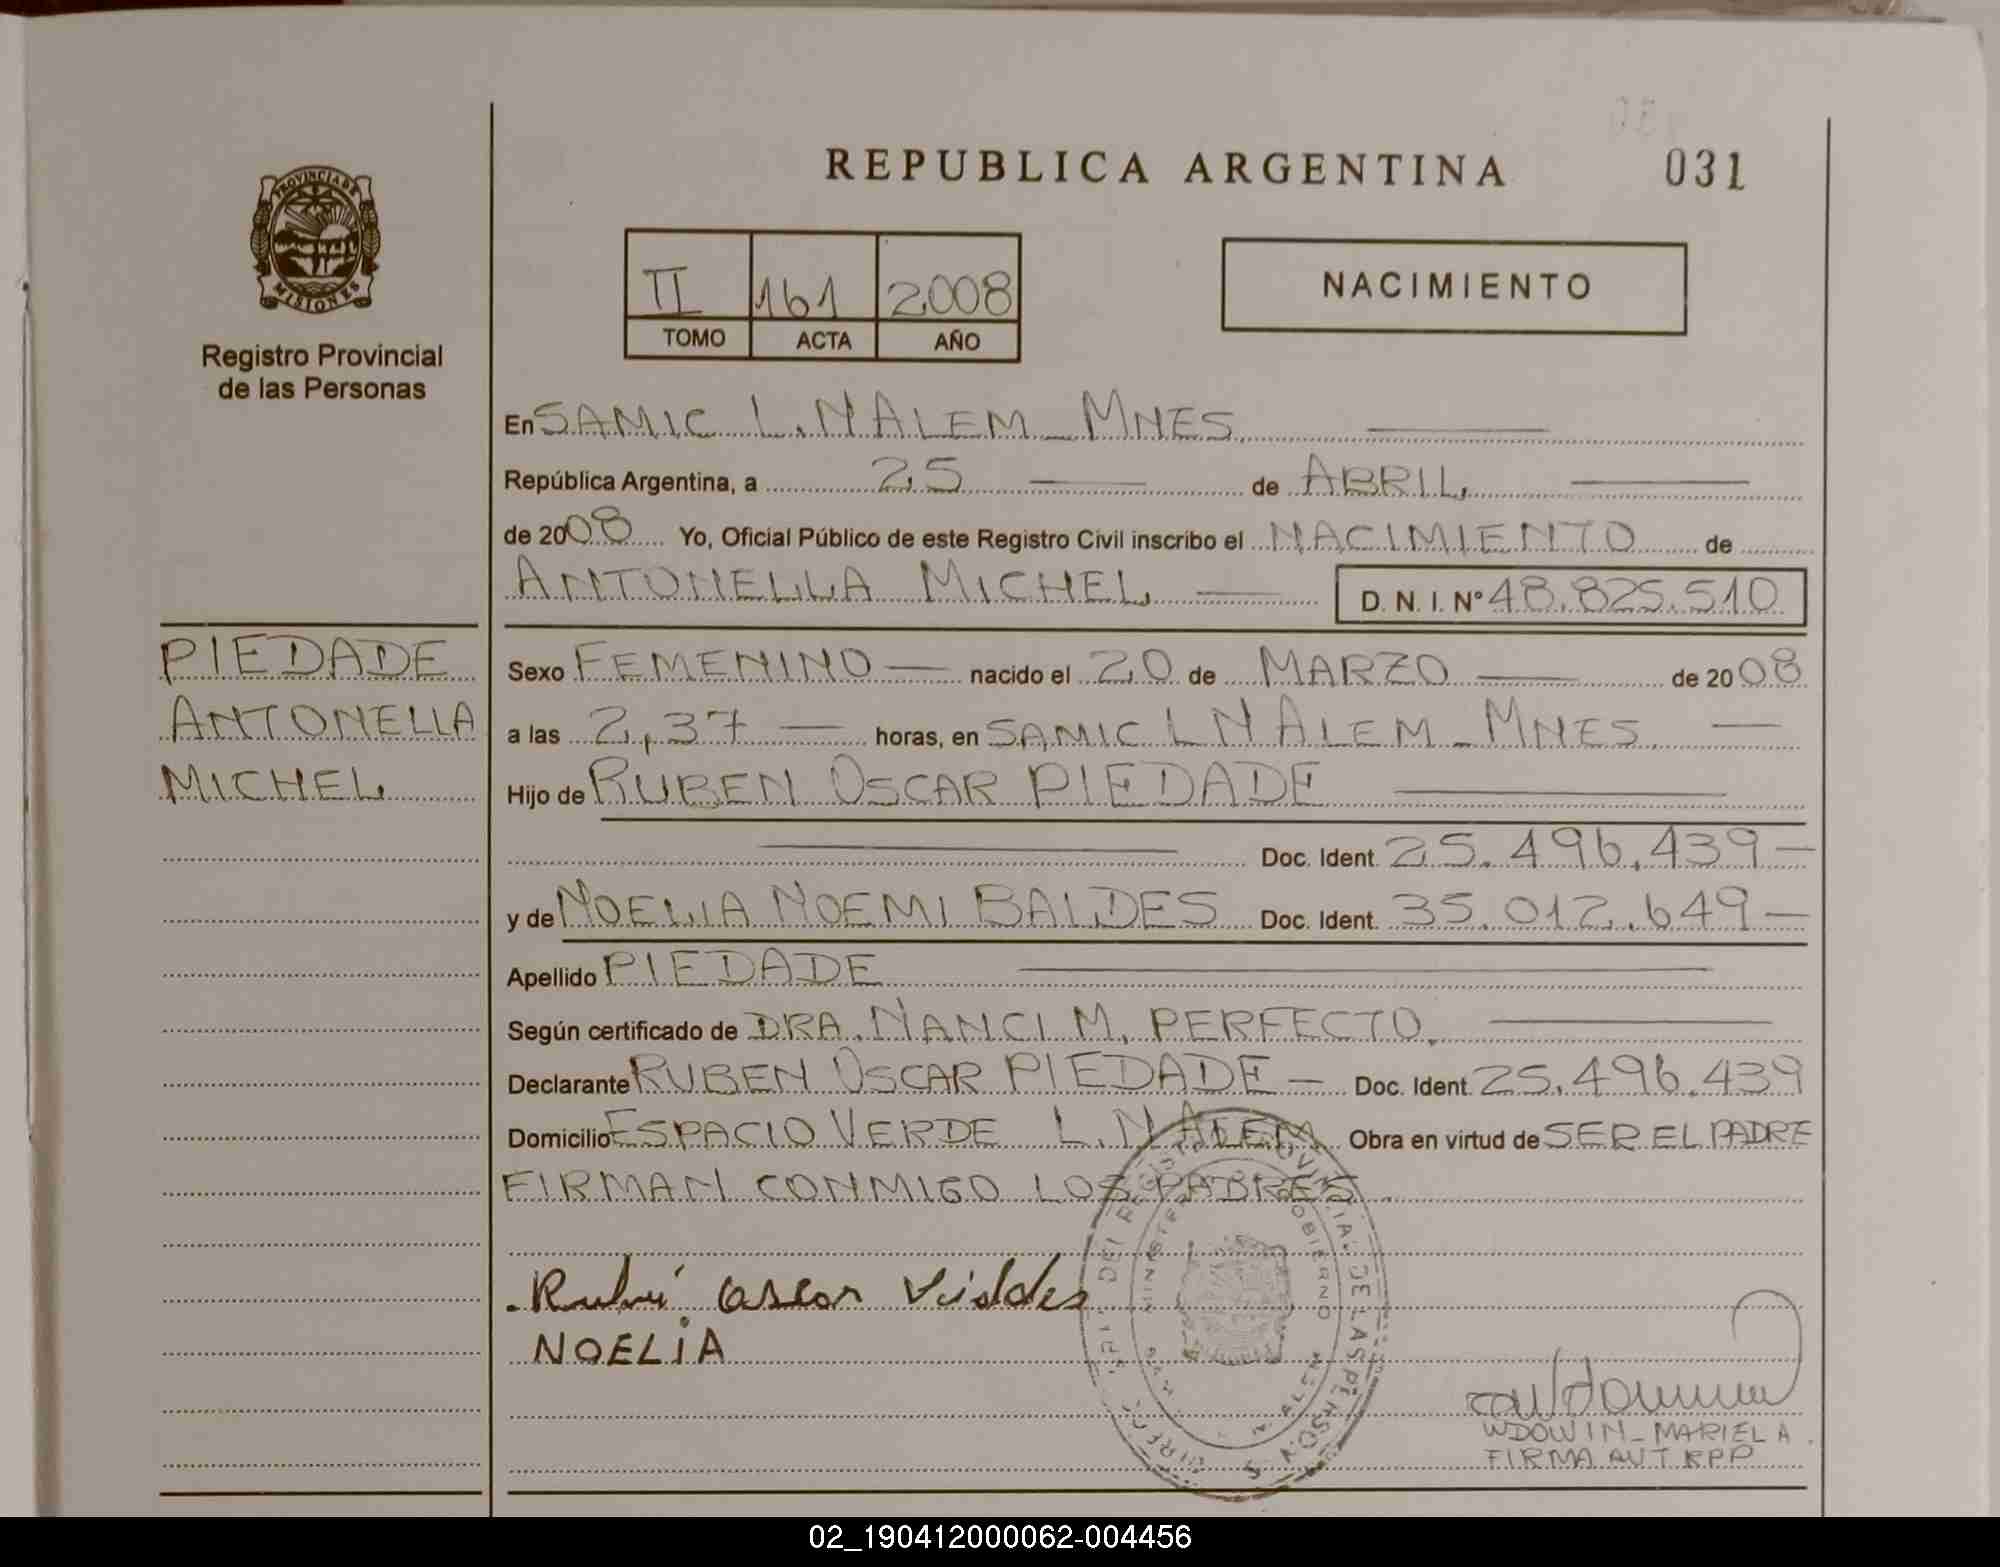 REPUBLICA ARGENTINA 031
PROVINCIA DE
MISIONES
Registro Provincial
de las Personas
II 161 2008
TOMO ACTA AÑO
NACIMIENTO
En SAMIC L.N ALEM - MNES
República Argentina, a 25 de ABRIL
de 2008 Yo, Oficial Público de este Registro Civil inscribo el NACIMIENTO de
ANTONELLA MICHEL D. N. I. Nº 48.825.510
PIEDADE
ANTONELLA
MICHEL
Sexo FEMENINO nacido el 20 de MARZO de 2008
a las 2,37 horas, en SAMIC L N ALEM - MNES
Hijo de RUBEN OSCAR PIEDADE
Doc. Ident. 25.496.439
y de NOELIA NOEMI BALDES Doc. Ident. 35.012.649
Apellido PIEDADE
Según certificado de DRA. NANCI M. PERFECTO
Declarante RUBEN OSCAR PIEDADE Doc. Ident. 25.496.439
Domicilio ESPACIO VERDE L.N ALEM Obra en virtud de SER EL PADRE
FIRMAN CONMIGO LOS PADRES.
oscar
NOELiA
WDOWIN - MARIELA
FIRMA AUT RPP
02_190412000062-004456